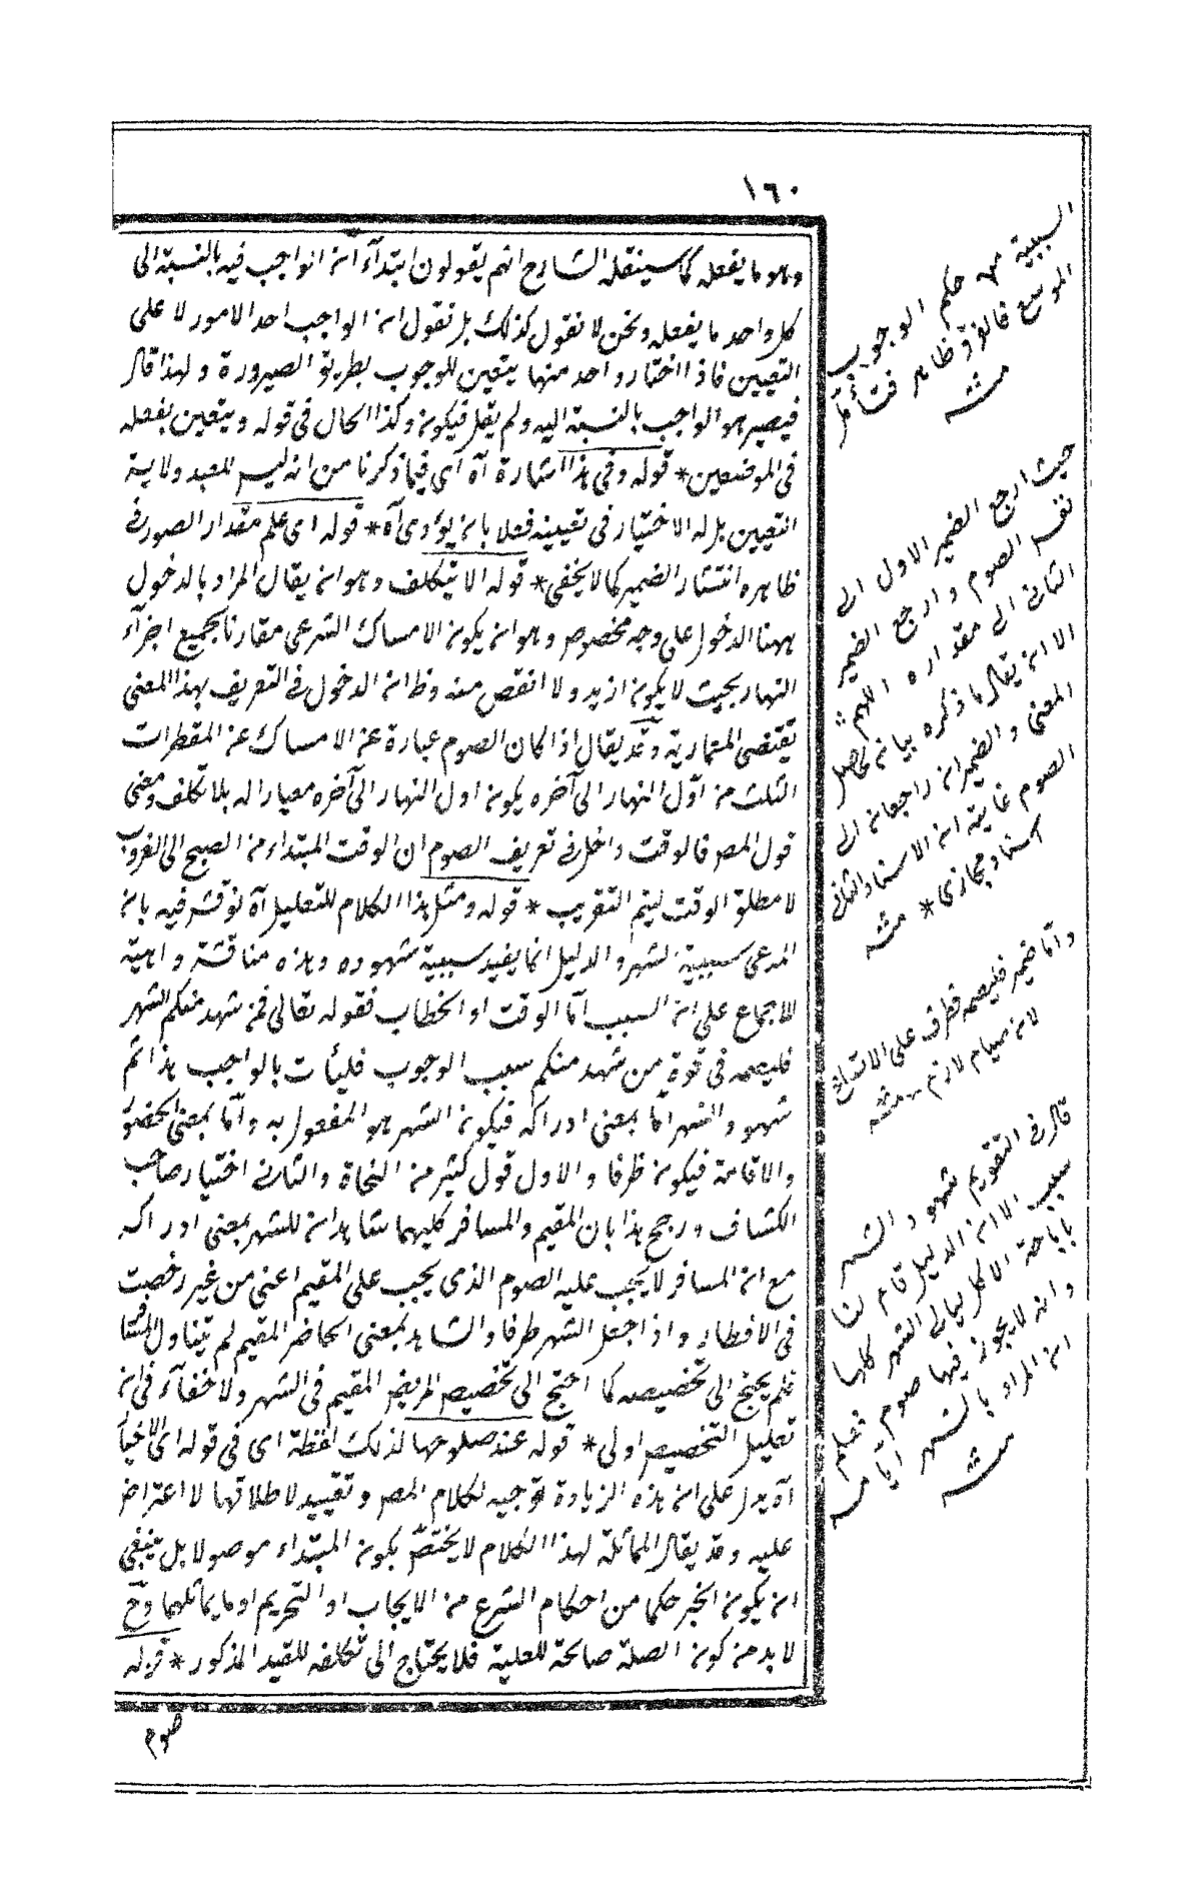 ١٦٠
وهو ما يفعله كما سينقله الشارح انهم يقولون ابتدآء ان الواجب فيه بالنسبة الى
كل واحد ما يفعله ونحن لا نقول كذلك بل نقول ان الواجب احد الامور لا على
التعيين فاذا اختار واحد منها يتعين للوجوب بطريق الصيرورة ولهذا قال
فيصير هو الواجب بالنسبة اليه ولم يقل فيكون وكذا الحال فى قوله ويتعين بفعله
فى الموضعين * قوله وفى هذا اشارة آه اى فيما ذكرنا من انه ليس للعبد ولاية
التعيين بل له الاختيار فى تعيينه فعلا بان يؤدى آه * قوله اى علم مقدار الصوم فى
ظاهره انتشار الضمير كما لا يخفى * قوله الا يتكلف وهو ان يقال المراد بالدخول
ههنا الدخول على وجه مخصوص وهو ان يكون الامساك الشرعى مقارنا بجميع اجزآء
النهار بحيث لا يكون ازيد ولا انقص منه وظ ان الدخول فى التعريف بهذا المعنى
يقتضى المتمارية وقد يقال اذا كان الصوم عبارة عن الامساك عن المفطرات
الثلث من اول النهار الى آخره يكون اول النهار الى آخره معيارا له بلا تكلف ومعنى
قول المص فالوقت داخل فى تعريف الصوم ان الوقت المبتداء من الصبح الى الغروب
لا مطلق الوقت ليتم التقريب * قوله ومثل هذا الكلام للتعليل آه نوقش فيه بان
المدعى سببية الشهر والدليل انما يفيد سببية شهوده وهذه مناقشة واهية
للاجماع على ان السبب اما الوقت او الخطاب فقوله تعالى فمن شهد منكم الشهر
فليصمه فى قوة من شهد منكم سبب الوجوب فليأت بالواجب هذا ثم
شهود الشهر اما بمعنى ادراكه فيكون الشهر هو المفعول به واما بمعنى الحضور
والاقامة فيكون ظرفا والاول قول كثير من النحاة والثانى اختيار صاحب
الكشاف ورجح هذا بان المقيم والمسافر كليهما شاهدان للشهر بمعنى ادراكه
مع ان المسافر لا يجب عليه الصوم الذى يجب على المقيم اعنى من غير رخصة
فى الافطار واذا جعل الشهر ظرفا والشاهد بمعنى الحاضر المقيم لم يتناول المسافر
فلم يحتج الى تخصيصه كما احتج الى تخصيص المريض المقيم فى الشهر ولا خفآء فى ان
تعليل التخصيص اولى * قوله عند صلوحها لذلك لفظة اى فى قوله اى الاخبار
آه يدل على ان هذه الزيادة توجيه لكلام المص وتقييد لاطلاقها لا اعتراض
عليه وقد يقال المماثلة لهذا الكلام لا يختص بكون المبتداء موصولا بل ينبغى
ان يكون الخبر حكما من احكام الشرع من الايجاب او التحريم او ما يماثلهما وح
لا بد من كون الصلة صالحة للعلية فلا يحتاج الى تكلفه للقيد المذكور * قوله
صوم
السببية من حكم الوجوب
الموسع فالفرق ظاهر فتأمل
منه
حيث ارجع الضمير الاول الى
نفس الصوم وارجع الضمير
الثانى الى مقداره اللهم
الا ان يقال ما ذكره بيان لحاصل
المعنى والضميران راجعان الى
الصوم غايته ان الاسناد الثانى
اسناد مجازى * منه
واما ضمير فليصمه فظرف على الاتساع
لان صيام لازم منه
قال فى التقويم شهود الشهر
سبب الا ان الدليل قام لنا
باباحة الاكل ليالى الشهر كلها
وانه لا يجوز فيها صوم فعلم
ان المراد بالشهر ايامه
منه